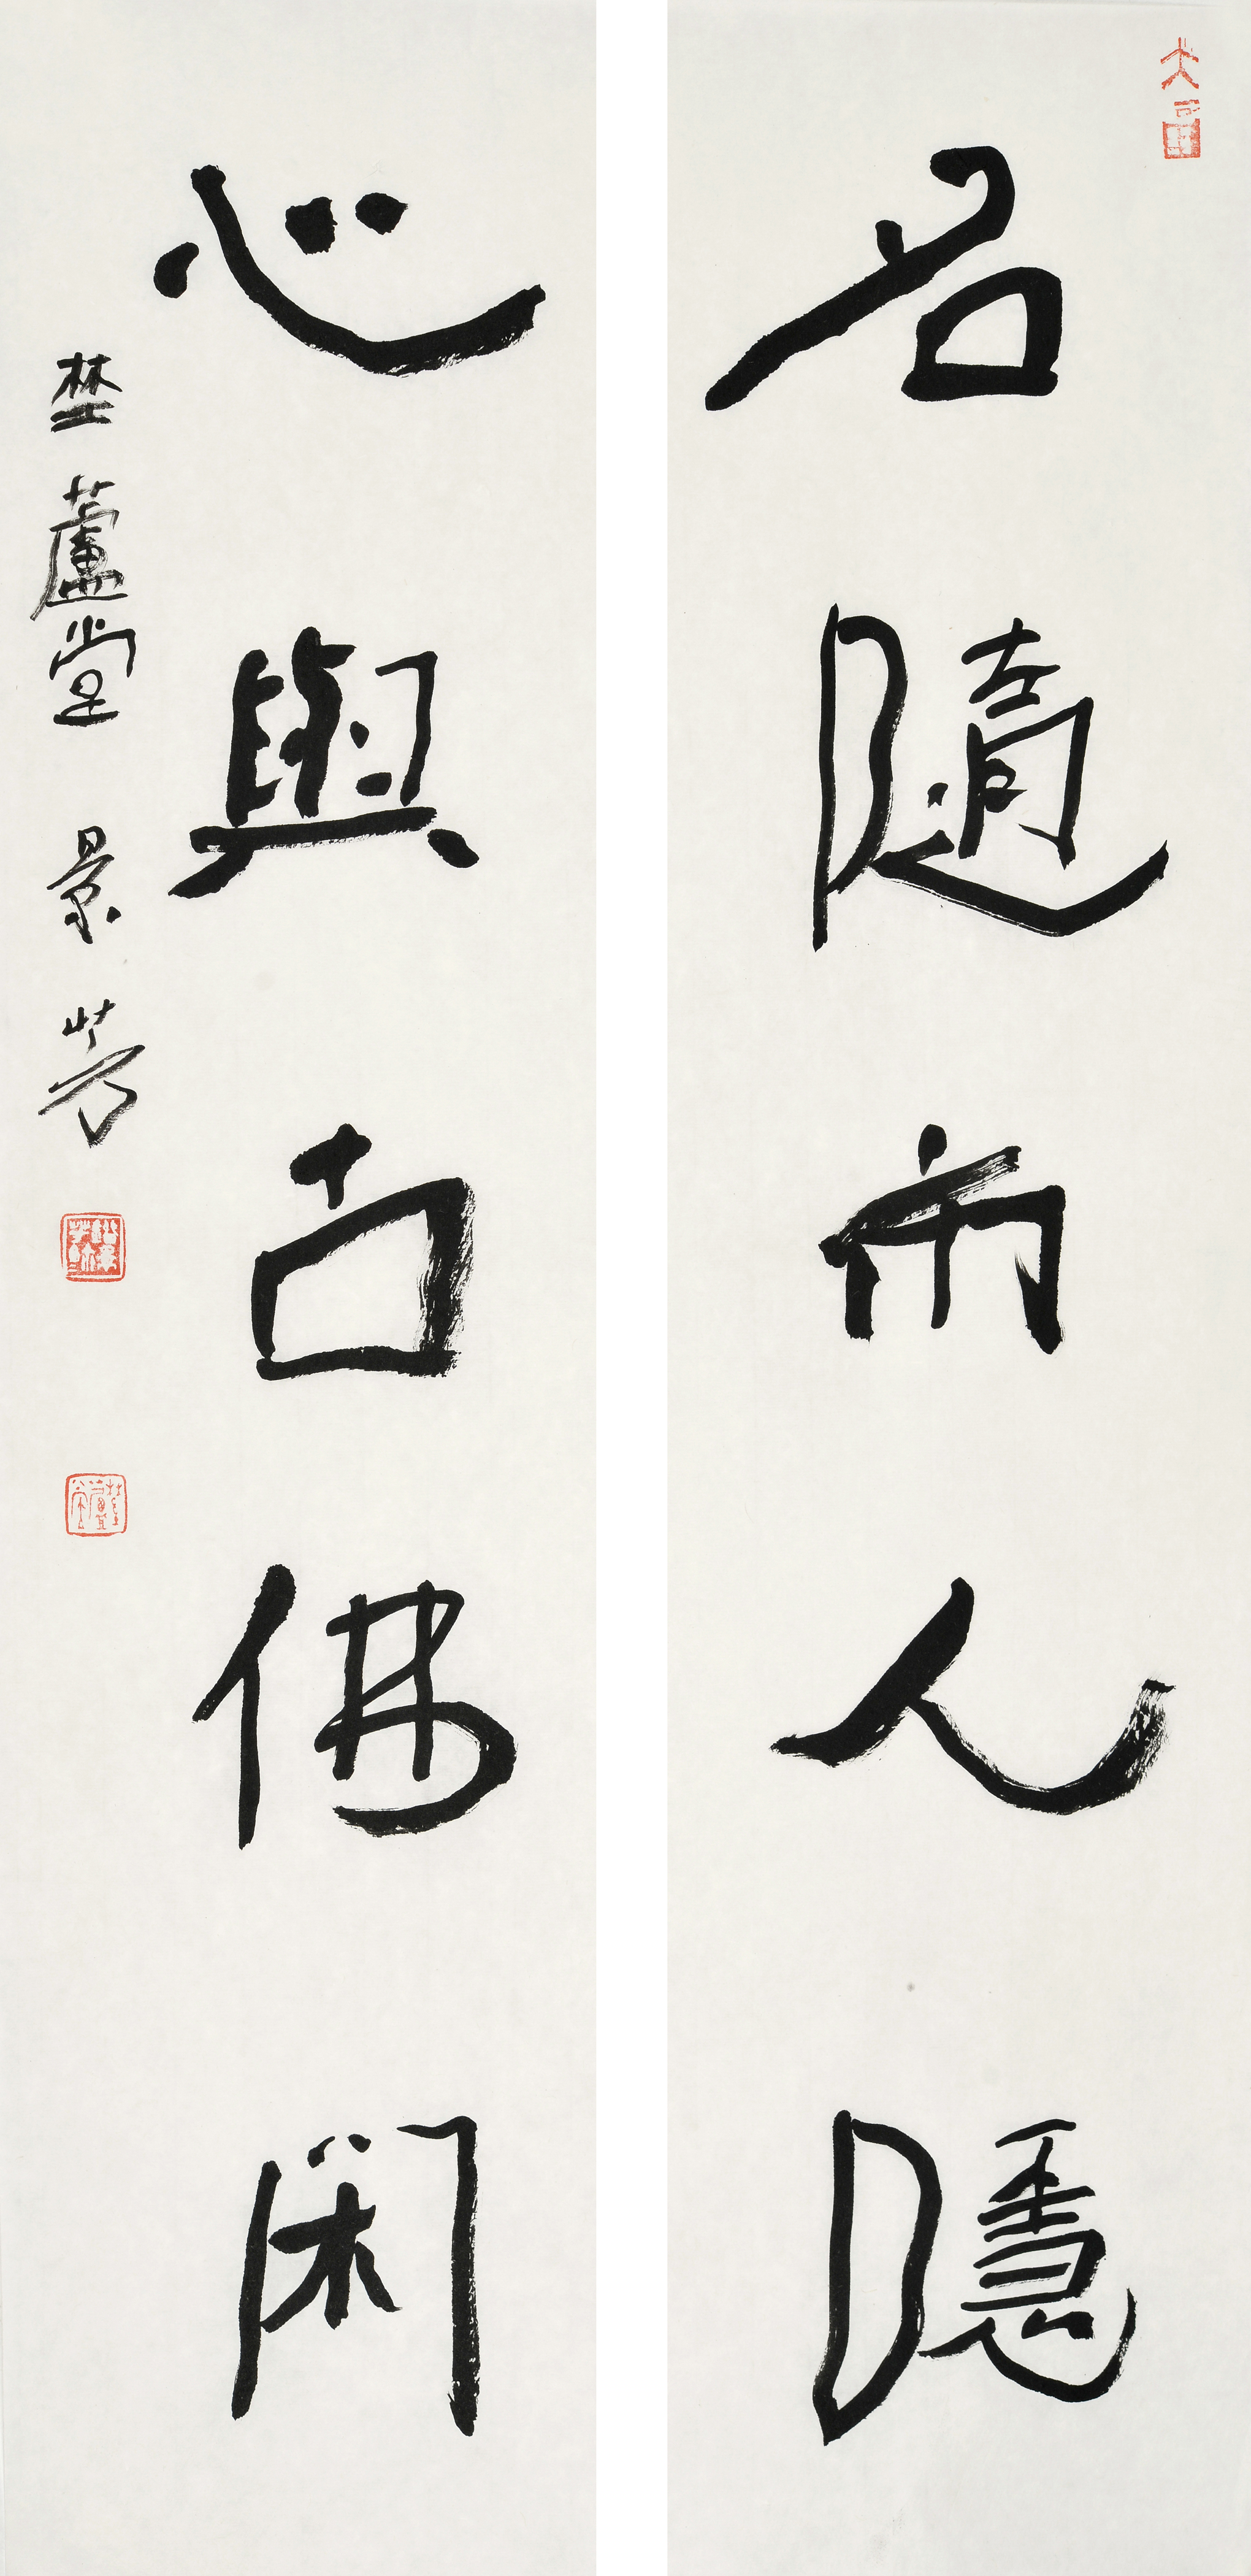 名隨市人隱
心與古佛閑
埜蘆堂 景芳